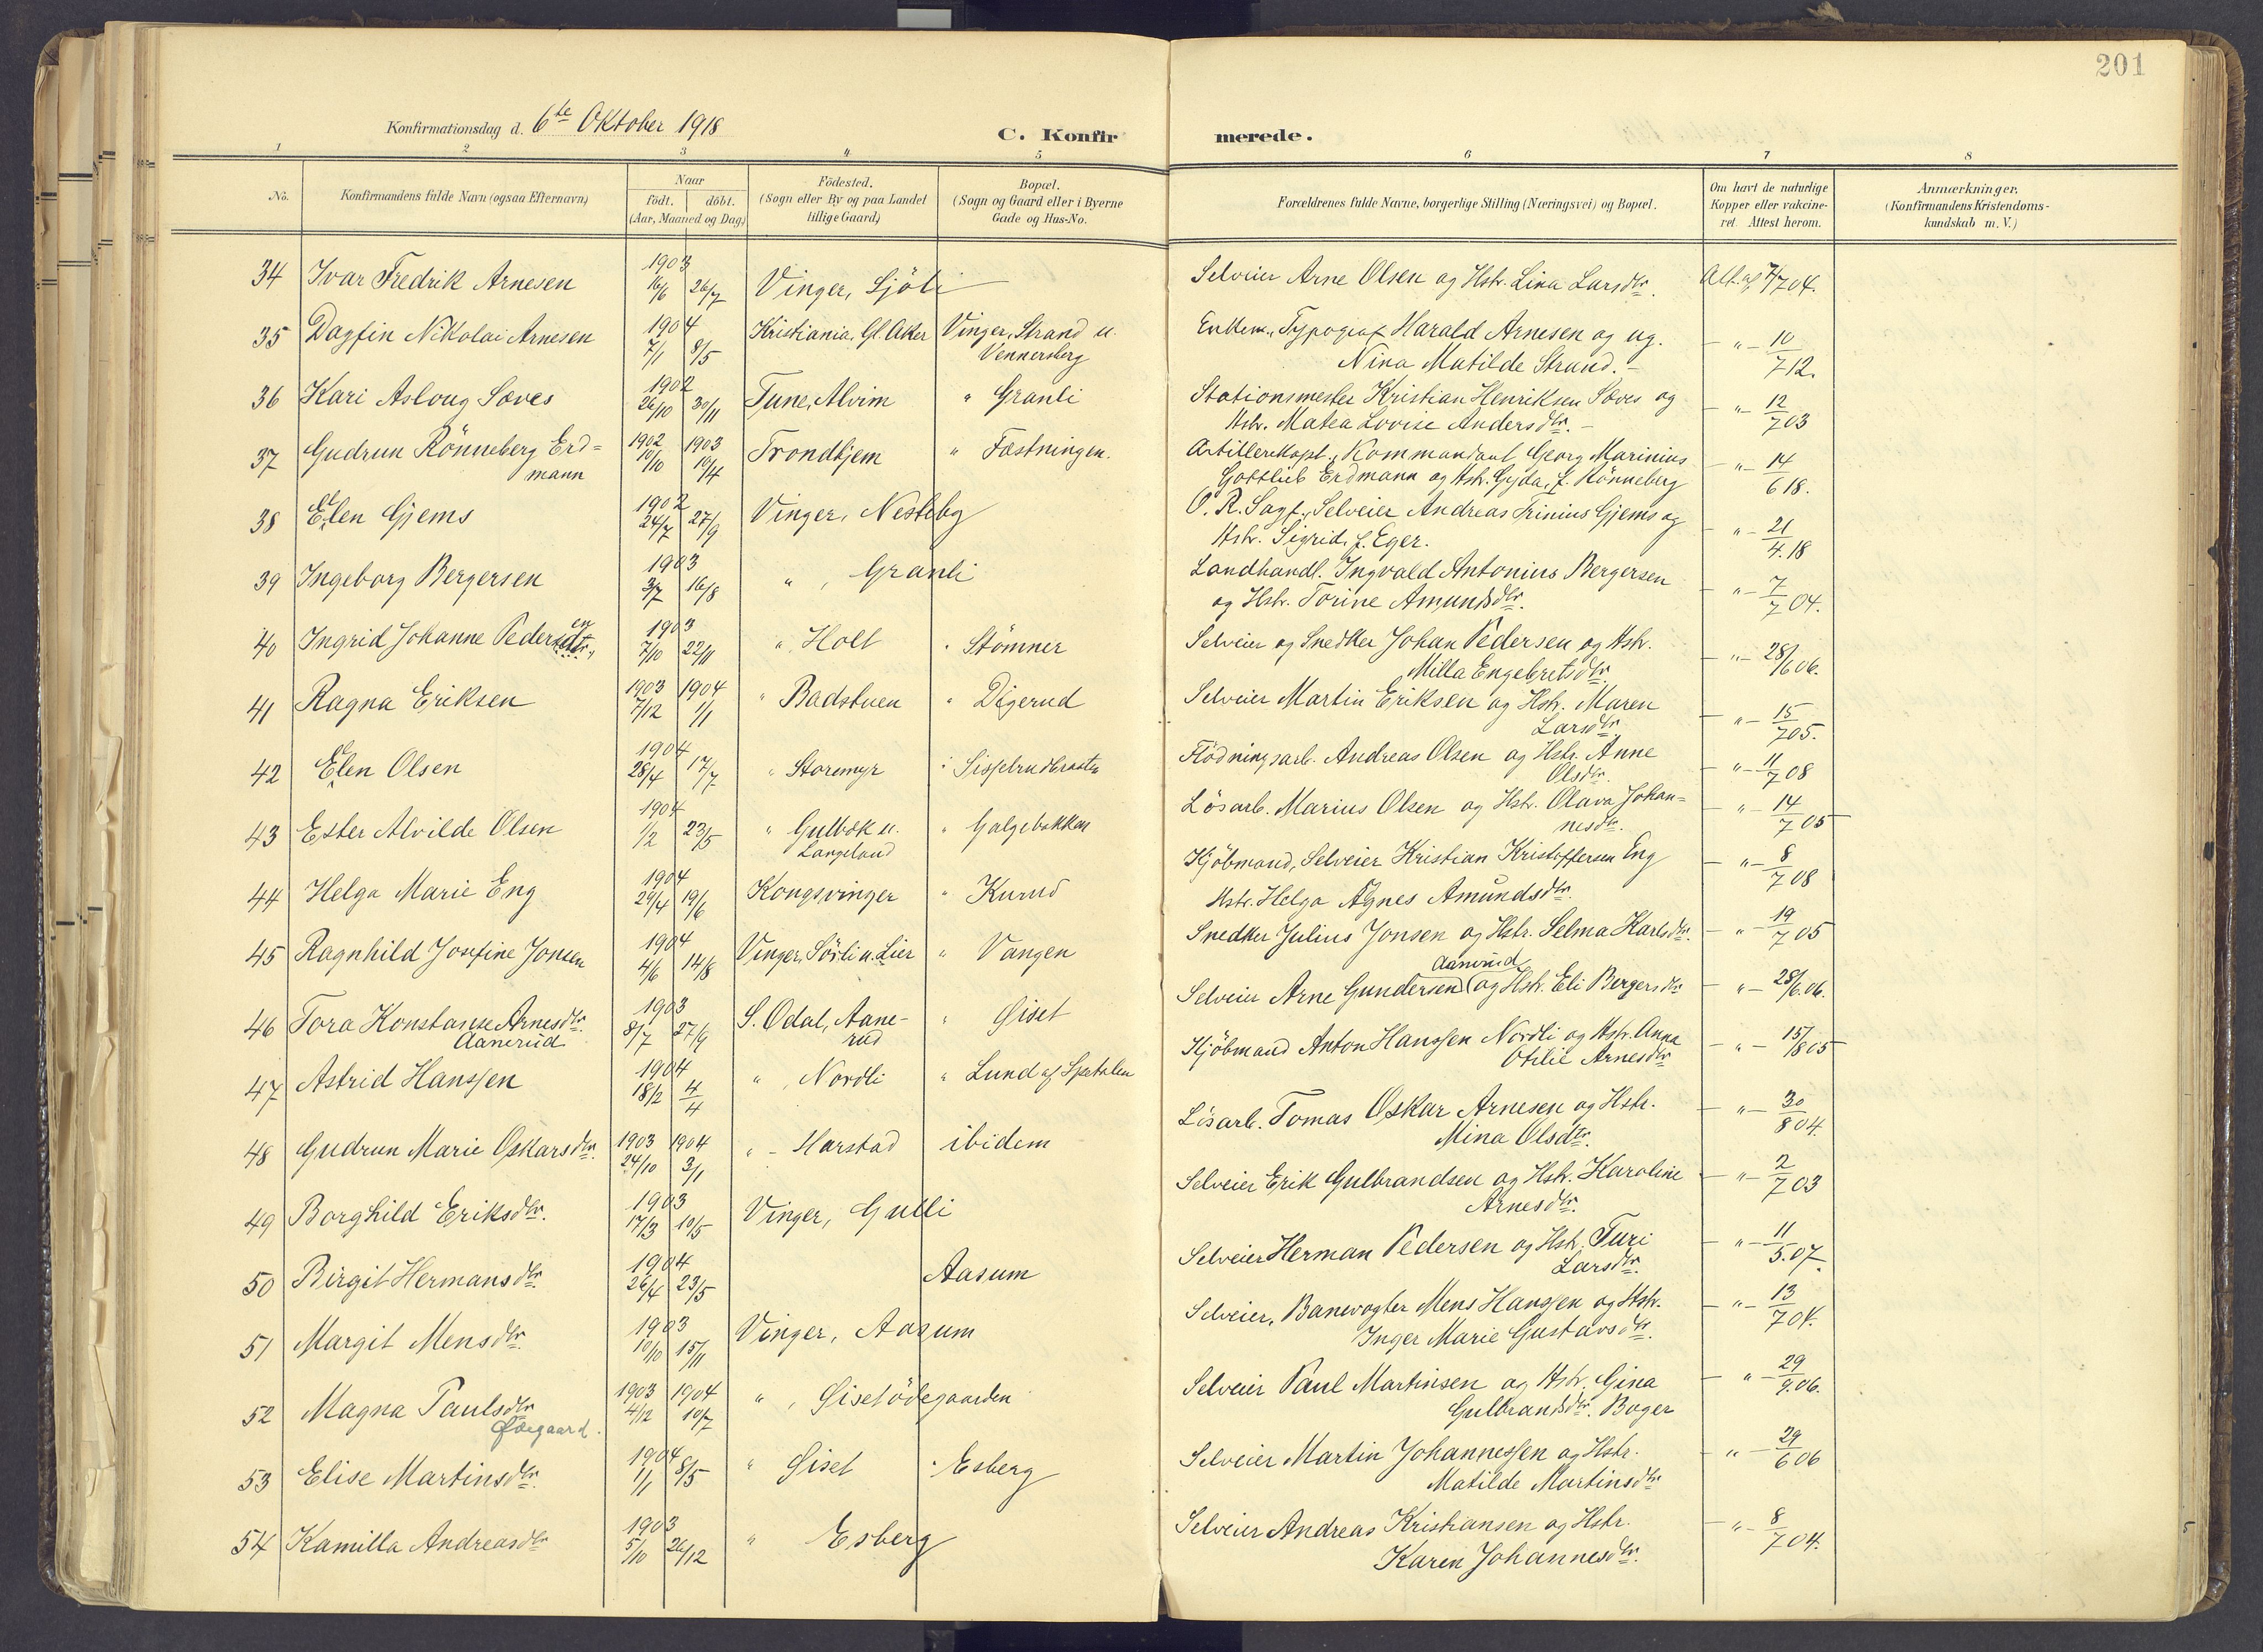 201
Konfirmationsdag d. 6te Oktober 1918
C. Konfirmerede.
1 2 3 4 5 6 7 8
No.
Konfirmandens fulde Navn (ogsaa Efternavn)
Naar
födt. döbt.
(Aar, Maaned og Dag)
Födested.
(Sogn eller By og paa Landet
tillige Gaard)
Bopæl.
(Sogn og Gaard eller i Byerne
Gade og Hus-No.
Forældrenes fulde Navne, borgerlige Stilling (Næringsvei) og Bopæl.
Om havt de naturlige
Kopper eller vakcine-
ret. Attest herom.
Anmærkninger.
(Konfirmandens Kristendoms-
kundskab m. V.)
34 Ivar Fredrik Arnesen 1903 16/6 26/7 Vinger, Sjöli Selveier Arne Olsen og Hstr. Lina Larsdtr. Att. af 7/704.
35 Dagfin Nikolai Arnesen 1904 7/1 8/5 Kristiania, Gl. Aker Vinger, Strand u.
Vennersberg
Enkem., Typograf Harald Arnesen og ug.
Nina Matilde Strand. - - " - 10/712.
36 Kari Asloug Sæves 1902 26/10 30/11 Tune, Alvim " Granli
Stationsmester Kristian Henriksen Sæves og
Hstr. Matea Lovise Andersdtr. - - " - 12/703
37 Gudrun Rönneberg Erd=
mann 1902 10/10 1903 10/4 Trondhjem " Fæstningen.
Artillerikapt., Kommandant Georg Marinius
Gottlieb Erdmann og Hstr. Gyda, f. Rönneberg - " - 14/618.
38 Ellen Gjems 1902 24/7 27/9 Vinger, Nesteby
O. R. Sagf., Selveier Andreas Trinius Gjems og
Hstr. Sigrid, f. Eger. - " - 21/4.18
39 Ingeborg Bergersen 1903 3/7 16/8 " , Granli
Landhandl. Ingvald Antonius Bergersen
og Hstr. Torine Amundsdtr. - " - 7/704.
40 Ingrid Johanne Pedersdtr. en 1903 7/10 22/11 " Holt " Stömner
Selveier og Snedker Johan Pedersen og Hstr.
Milla Engebretsdtr. - " - 28/606.
41 Ragna Eriksen 1903 7/12 1904 1/1 " Badstuen " Digerud
Selveier Martin Eriksen og Hstr. Maren
Larsdtr. - " - 15/705.
42 Ellen Olsen 1904 28/4 17/7 " Storemyr
Flödningsarb. Andreas Olsen og Hstr. Anne
Olsdtr. - " - 11/708
43 Ester Alvilde Olsen 1904 1/2 23/5 " Gulbæk u.
Langeland " Galgebakken
Lösarb. Marius Olsen og Hstr. Olava Johan=
nesdtr. - " - 14/705
44 Helga Marie Eng 1904 29/4 19/6 Kongsvinger " Kurud
Kjöbmand, Selveier Kristian Kristoffersen Eng
Hstr. Helga Agnes Amundsdtr. - " - 8/708
45 Ragnhild Josefine Jonsen 1904 4/6 14/8 Vinger, Sörli u. Lier " Vangen
Snedker Julius Jonsen og Hstr. Selma Karlsdtr. - " - 19/705
46 Tora Konstanse Arnesdtr.
Aanerud 1903 8/7 27/9 S. Odal, Aane-
rud " Giset
Aanerud
Selveier Arne Gundersen og Hstr. Eli Bergersdtr - " - 28/6.06.
47 Astrid Hanssen 1904 18/2 4/4 " , Nordli " Lund af Spetalen
Kjöbmand Anton Hanssen Nordli og Hstr. Anna
Otilie Arnesdtr - " - 15/805
48 Gudrun Marie Oskarsdtr. 1903 24/10 1904 3/1 " - Harstad ibidem
Lösarb. Tomas Oskar Arnesen og Hstr.
Mina Olsdtr. - " - 30/804.
49 Borghild Eriksdtr. 1903 17/3 10/5 Vinger, Gulli
Selveier Erik Gulbrandsen og Hstr. Karoline
Arnesdtr. - " - 2/703
50 Birgit Hermansdtr 1904 26/4 23/5 Aasum
Selveier Herman Pedersen og Hstr. Turi
Larsdtr. - " - 11/5.07.
51 Margit Mensdtr. 1903 10/10 15/11 Vinger, Aasum
Selveier, Banevogter Mens Hanssen og Hstr.
Inger Marie Gustavsdtr. - " - 13/704.
52 Magna Paulsdtr
Ødegaard. 1903 4/12 1904 10/7 " , Gisetödegaarden
Selveier Paul Martinsen og Hstr. Gina
Gulbrandsdtr. Boger - " - 29/9.06.
53 Elise Martinsdtr. 1904 1/1 8/5 " Giset " Esberg
Selveier Martin Johannessen og Hstr.
Matilde Martinsdtr - " - 29/606
54 Kamilla Andreasdtr 1903 5/10 26/12 " Esberg
Selveier Andreas Kristiansen og Hstr.
Karen Johannesdtr. - " - 8/704.